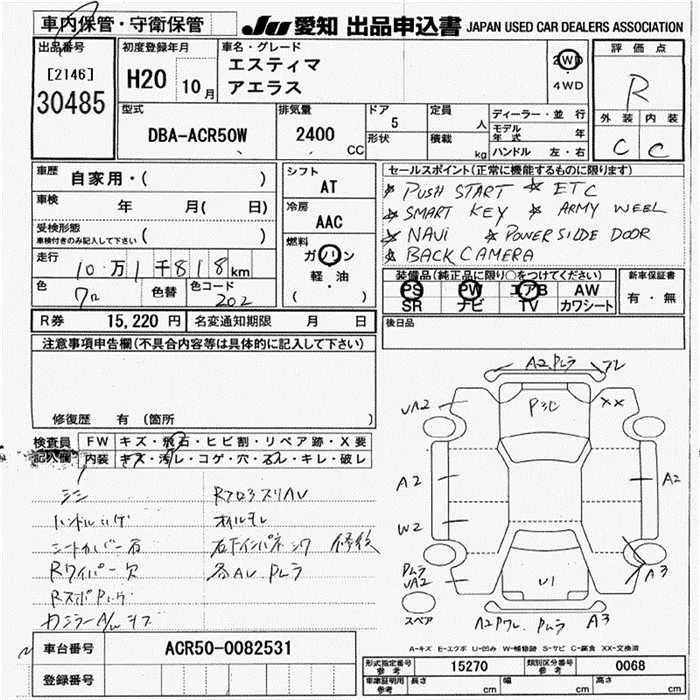 車内保管・守衛保管
JU愛知 出品申込書 JAPAN USED CAR DEALERS ASSOCIATION
出品番号
[2146]
30485
初度登録年月
H20 10月
車名・グレード
エスティマ
アエラス
2WD
4WD
評価点
R
外装 内装
C C
型式
DBA-ACR50W
排気量
2400
CC
ドア 5
形状
定員 人
積載 kg
ディーラー・並行
モデル年式 年
ハンドル 左・右
車歴
自家用・( )
車検 年 月( 日)
受検形態
車検付きのみ記入して下さい ( )
走行
10万1千818km
色 色替 色コード
202
シフト
AT
冷房
AAC
燃料
ガソリン
軽・油
( )
セールスポイント(正常に機能するものに限ります)
PUSH START ETC
SMART KEY ARMY WEEL
NAVI POWER SILDE DOOR
BACK CAMERA
装備品(純正品に限り○をつけてください)
PS PW エアB AW
SR ナビ TV カワシート
新車保証書
有・無
R券 15,220円 名変通知期限 月 日
後日品
注意事項申告欄(不具合内容等は具体的に記入して下さい)
修復歴 有 (箇所 )
検査員記入欄
FW キズ・飛石・ヒビ割・リペア跡・X要
内装 キズ・汚レ・コゲ・穴・スレ・キレ・破レ
シミ
オイルモレ
Rワイパー欠
修後
A2
XX
UA2
A2
A2
W2
UA2
A3
U1
A3
スペア
A-キズ E-エクボ U-凹み W-補修跡 S-サビ C-腐食 XX-交換済
車台番号 ACR50-0082531
登録番号
形式指定番号 参考 15270 類別区分番号 参考 0068
車庫証明用 参考 長さ cm 幅 cm 高さ cm